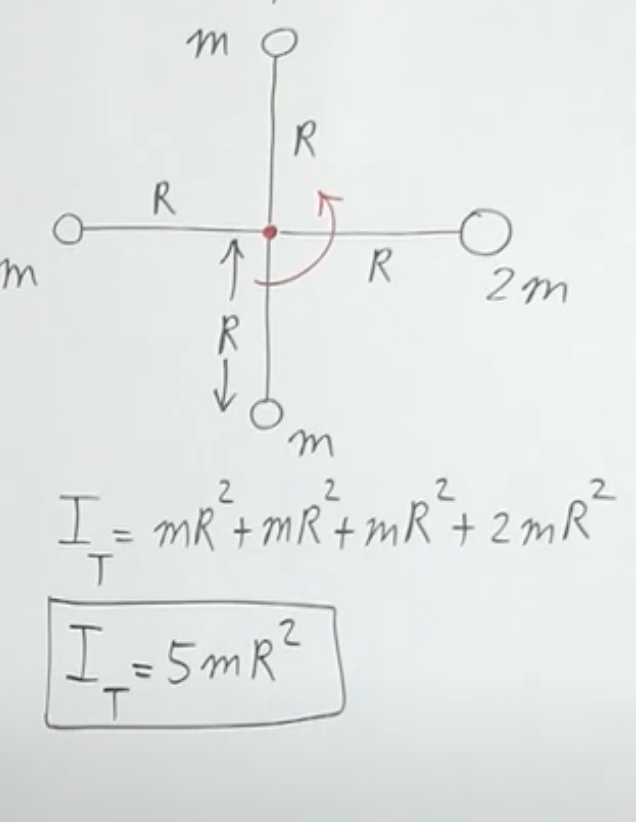 m
R
R
m
R
2m
R
m
I_T = mR² + mR² + mR² + 2mR²
I_T = 5mR²